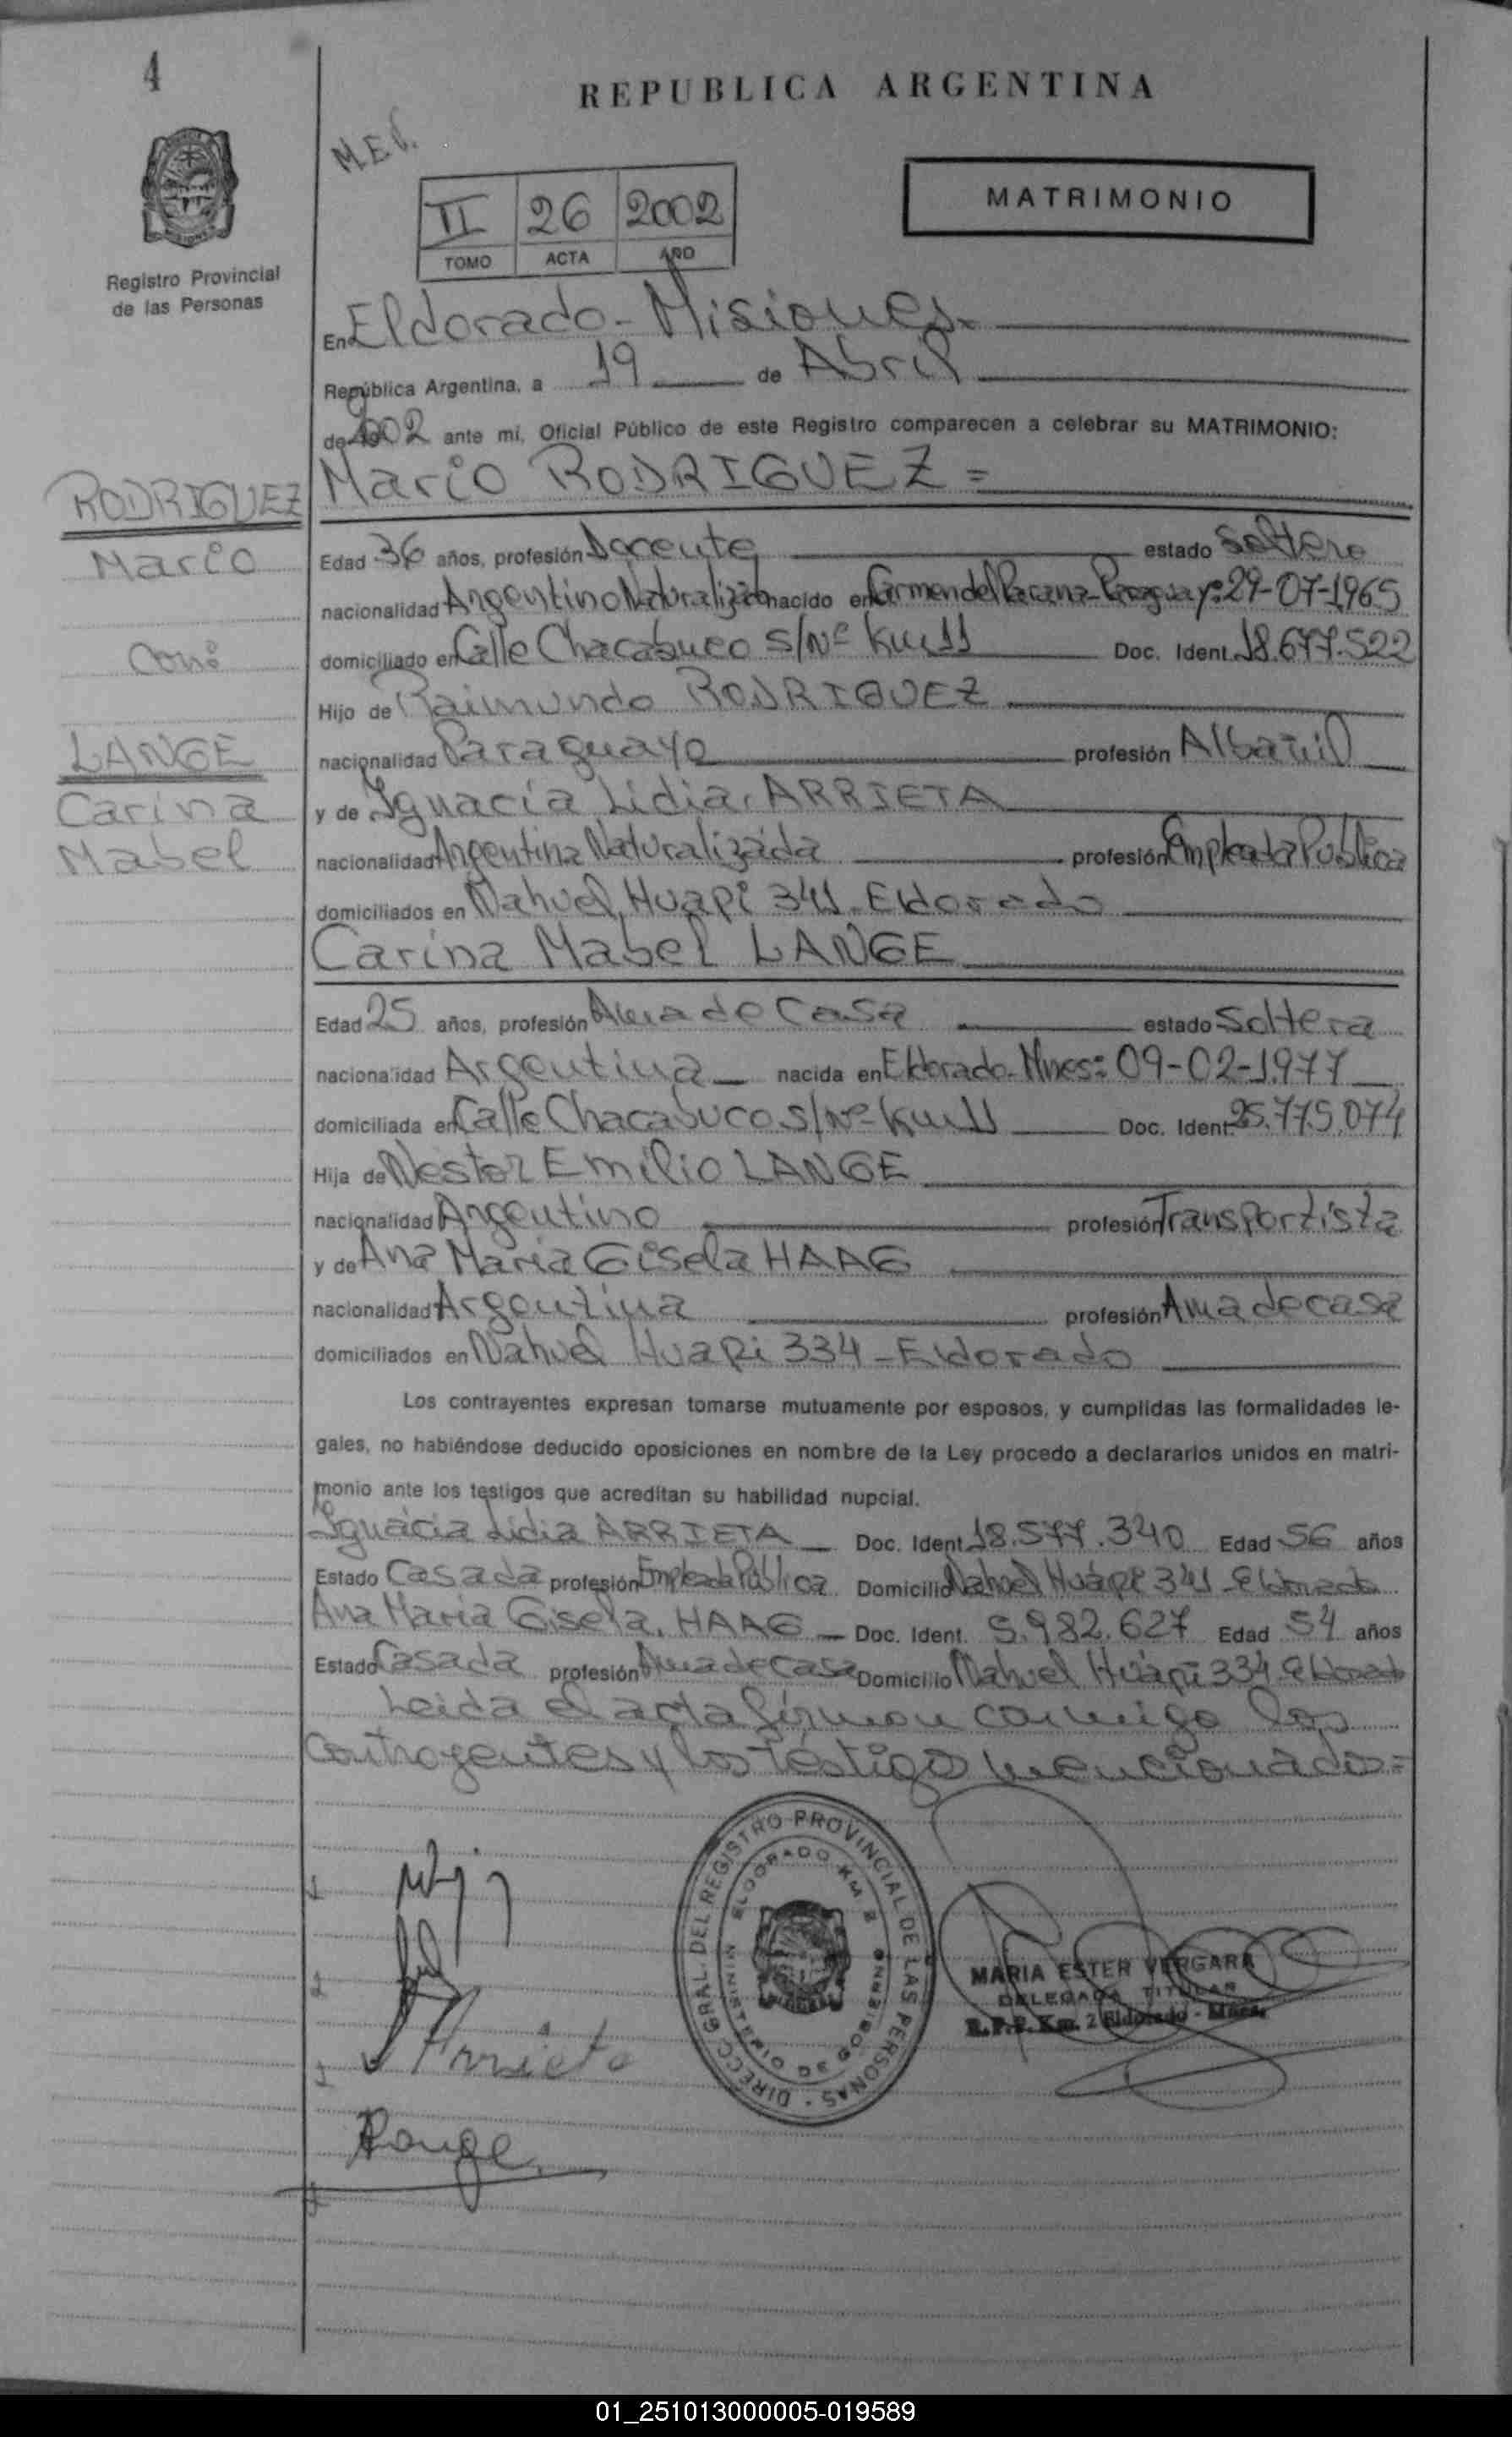 4
REPUBLICA ARGENTINA
M.E.V.
MATRIMONIO
II 26 2002
TOMO ACTA AÑO
Registro Provincial
de las Personas
En Eldorado - Misiones.
República Argentina, a 19 de Abril
de 2002 ante mí, Oficial Público de este Registro comparecen a celebrar su MATRIMONIO:
Mario RODRIGUEZ =
RODRIGUEZ
Mario
Con:
LANGE
Carina
Mabel
Edad 36 años, profesión Docente estado Soltero
nacionalidad Argentino Naturalizado nacido en Carmen del Parana - Paraguay: 29-07-1965
domiciliado en Calle Chacabuco S/Nº Km 11 Doc. Ident. 18.677.522
Hijo de Raimundo RODRIGUEZ
nacionalidad Paraguayo profesión Albañil
y de Ignacia Lidia ARRIETA
nacionalidad Argentina Naturalizada profesión Empleada Publica
domiciliados en Nahuel Huapi 341 - Eldorado
Carina Mabel LANGE
Edad 25 años, profesión Ama de Casa estado Soltera
nacionalidad Argentina nacida en Eldorado - Mnes: 09-02-1977
domiciliada en Calle Chacabuco S/Nº Km 11 Doc. Ident. 25.775.074
Hija de Nestor Emilio LANGE
nacionalidad Argentino profesión Transportista
y de Ana Maria Gisela HAAG
nacionalidad Argentina profesión Ama de casa
domiciliados en Nahuel Huapi 334 - Eldorado
Los contrayentes expresan tomarse mutuamente por esposos, y cumplidas las formalidades le-
gales, no habiéndose deducido oposiciones en nombre de la Ley procedo a declararlos unidos en matri-
monio ante los testigos que acreditan su habilidad nupcial.
Ignacia Lidia ARRIETA Doc. Ident. 18.577.340 Edad 56 años
Estado Casada profesión Empleada Pública Domicilio Nahuel Huapi 341 - Eldorado
Ana Maria Gisela HAAG Doc. Ident. 5.982.627 Edad 54 años
Estado Casada profesión Ama de casa Domicilio Nahuel Huapi 334 - Eldorado
Leida el acta firman conmigo los
contrayentes y los testigos mencionados =
DIRECC. GRAL. DEL REGISTRO PROVINCIAL DE LAS PERSONAS
MINISTERIO DE GOBIERNO ELDORADO KM 2
MARIA ESTER VERGARA
DELEGADA TITULAR
R.P.P. Km. 2 Eldorado - Mnes.
Arrieta
01_251013000005-019589